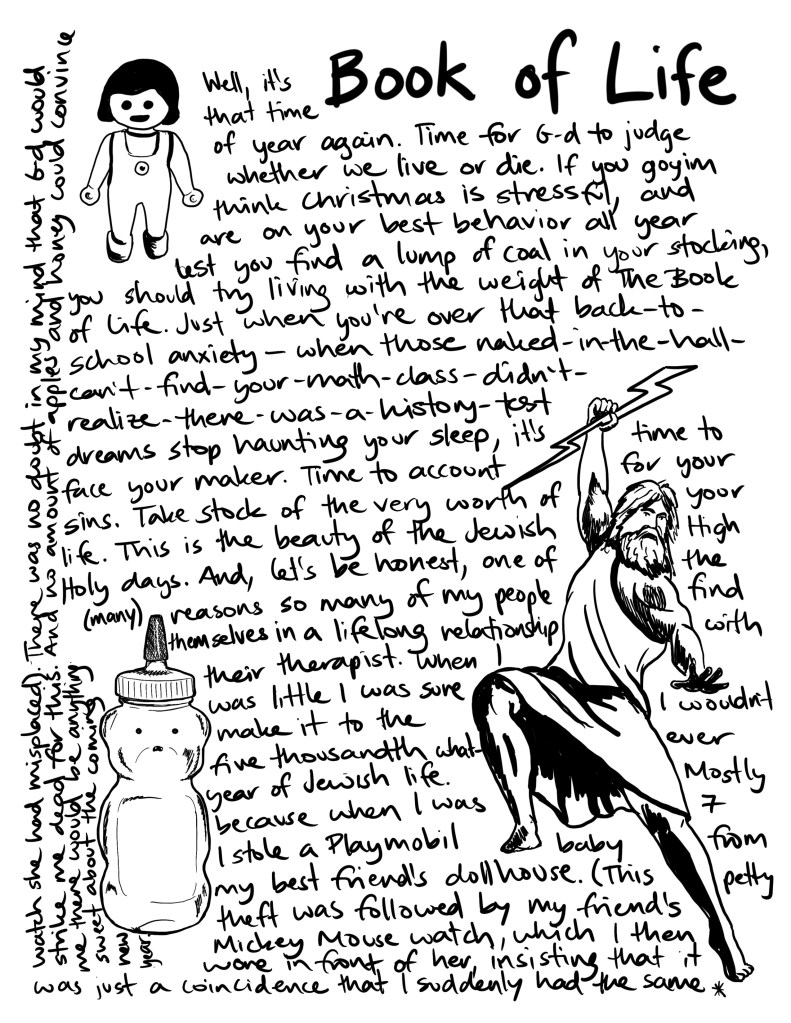 Book of Life
Well, it's
that time
of year again. Time for G-d to judge
whether we live or die. If you goyim
think Christmas is stressful, and
are on your best behavior all year
lest you find a lump of coal in your stocking,
you should try living with the weight of The Book
of Life. Just when you're over that back-to-
school anxiety – when those naked-in-the-hall-
can't-find-your-math-class-didn't-
realize-there-was-a-history-test
dreams stop haunting your sleep, it's time to
face your maker. Time to account for your
sins. Take stock of the very worth of your
life. This is the beauty of the Jewish High
Holy days. And, let's be honest, one of the
(many) reasons so many of my people find
themselves in a lifelong relationship with
their therapist. When I
was little I was sure I wouldn't
make it to the
five thousandth what- ever
year of Jewish life. Mostly
because when I was 7
I stole a Playmobil baby from
my best friend's dollhouse. (This petty
theft was followed by my friend's
Mickey Mouse watch, which I then
wore in front of her, insisting that it
was just a coincidence that I suddenly had the same *
watch she had misplaced). There was no doubt in my mind that G-d would
strike me dead for this. And no amount of apples and honey could convince
me there would be anything
sweet about the coming
new
year.